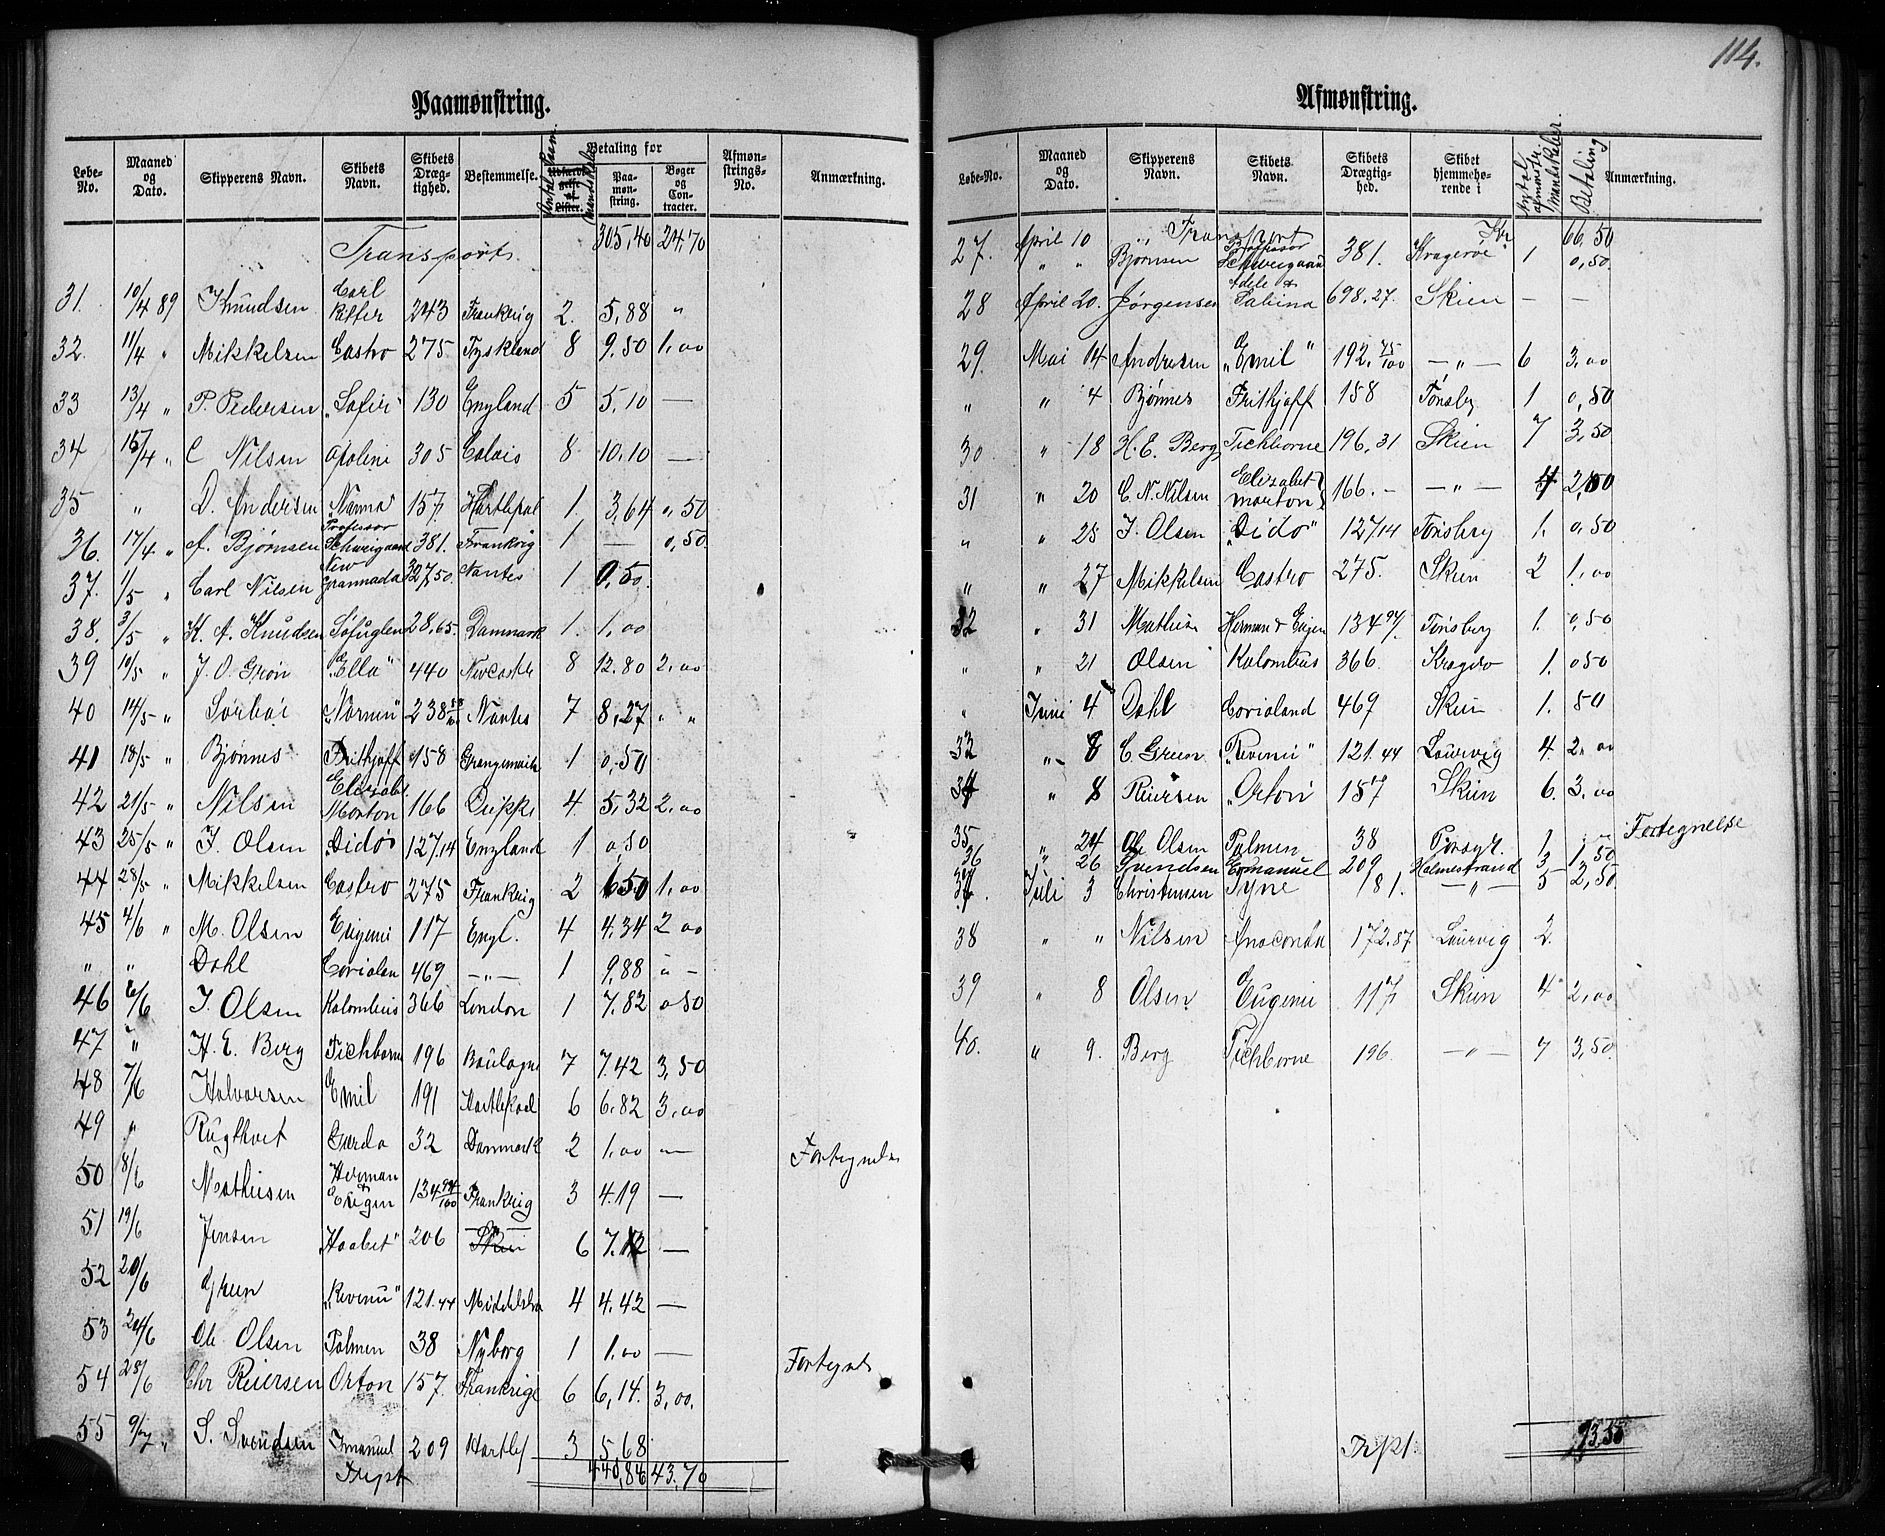 114.
Paamønstring.
Løbe-No. Maaned og Dato. Skipperens Navn. Skibets Navn. Skibets Drægtighed. Bestemmelse. Betaling for Paamønstring. Bøger og Contracter. Afmønstrings-No. Anmærkning.
Transport 305,40 24,70
31. 10/4 89 Knudsen Carl Ritter 243 Frankrig 2. 5,88 "
32. 11/4 " Mikkelsen Castro 275 Tyskland 8 9,50 1,00
33 13/4 " P. Pedersen "Safir" 130 England 5 5,10 —
34 15/4 " C Nilsen Apoline 305 Calais 8 10,10 —
35 " D. Andersen Nanna 157 Hartlepol 1. 3,64 " 50
36. 17/4 " A. Bjørnsen Professor Schweigaard 381. Frankrig 1 — 0,50
37. 1/5 " Carl Nilsen New Grannada 327,50. Nantes 1 0,50.
38. 3/5 " K. A. Knudsen Søfuglen 28,65. Danmark 1. 1,00
39 10/5 " J. O. Grøn "Ella" 440 Newcastle 8 12,80 2,00
40 14/5 " Sørbøe "Nornen" 238 58/100 Nantes 7 8,27 " "
41 18/5 " Bjønnes Frithjoff 158 Grangemouth 1 0,50
42 21/5 " Nilsen Elizabt Morton 166 Dieppe 4. 5,32 2,00
43 25/5 " J. Olsen "Dido" 127,14 England 1 0,50
44 28/5 " Mikkelsen Castro 275 Frankrig 2 6,50 1,00
45 4/6 " M. Olsen Eugeni 117 Engl. 4 4,34 2 00
" " Dahl Coriolan 469 —"— 1 9,88 " —
46 6/6 J. Olsen Kolombus 366 London 1 7,82 0 50
47 " H. E. Berg Tichborne 196 Boulogne 7 7,42 3,50
48 7/6 Halvorsen Emil 191 Hartlepool 6 6,82 3,00
49 " Rugtvet Gerda 32 Danmark 2 1,00 — Fortegnelse
50 8/6 Mathisen Herman & Eugen 134 94/100 Frankrig 3 4,19 —
51 19/6 Jensen "Haabet" 206 Skien 6 7,12 —
52 20/6 Green "Revenu" 121.44 Middelsbro 4 4,42 —
53 24/6 Ole Olsen Palmen 38 Nyborg 1 1,00 — Fortegnels
54 28/6 Chr Reiersen Orton 157. Frankrige 6 6,14. 3,00.
55 9/7 " S. Svendsen Imanuel 209 Hartlep 3 5,68
Trspt 440,86 43,70
Afmønstring.
Løbe-No. Maaned og Dato. Skipperens Navn. Skibets Navn. Skibets Drægtighed. Skibet hjemmehørende i Antal afmønstr. Mandskaber. Betaling Anmærkning.
Transport Kr 66,50
27. April 10 " " Bjørnsen Professor Schweigaard 381. Kragerøe 1 0,50
28 April 20. Jørgensen Adele & Sabina 698,27. Skien — —
29. Mai 14 Andresen "Emil" 192. 45/100 —"— 6 3,00
" " 4 Bjønnes Frithjoff 158 Tønsbg 1 0,50
30 " 18 H. E. Berg Tichborne 196,31 Skien 7 3,50
31 " 20 C. N. Nilsen Elizabet morton 166. — —"— 4 2,00
" " 25 J. Olsen "Dido" 127,14 Tønsberg 1. 0,50
" " 27 Mikkelsen Castro 275. Skien 2 1,00
32 " 31 Mathisen Herman & Eugen 134 94/ Tønsberg 1. 0,50
" " 21 Olsen Kolombus 366. Kragerø 1. 0 50
" Juni 4 Dahl Corioland 469 Skien 1. 50
33 " 8 C. Green "Revenu" 121.44 Laurvig 4. 2,00
34 " 8 Reiersen "Orton" 157 Skien 6. 3,00
35 " 24 Ole Olsen Palmen 38 Porsgr. 1 — Fortegnelse
36 " 26 Svendsen Emanuel 209 Holmestrand 3 1,50
37. Juli 3 Christensen Tyne 181. —"— 5 2,50
38 " " Nilsen Anaconda 172.87 Laurvig 2.
39 " 8 Olsen Eugenie 117 Skien 4 2,00
40. " 9. Berg Tichborne 196 —"— 7 3,50
Trspt. 93,50